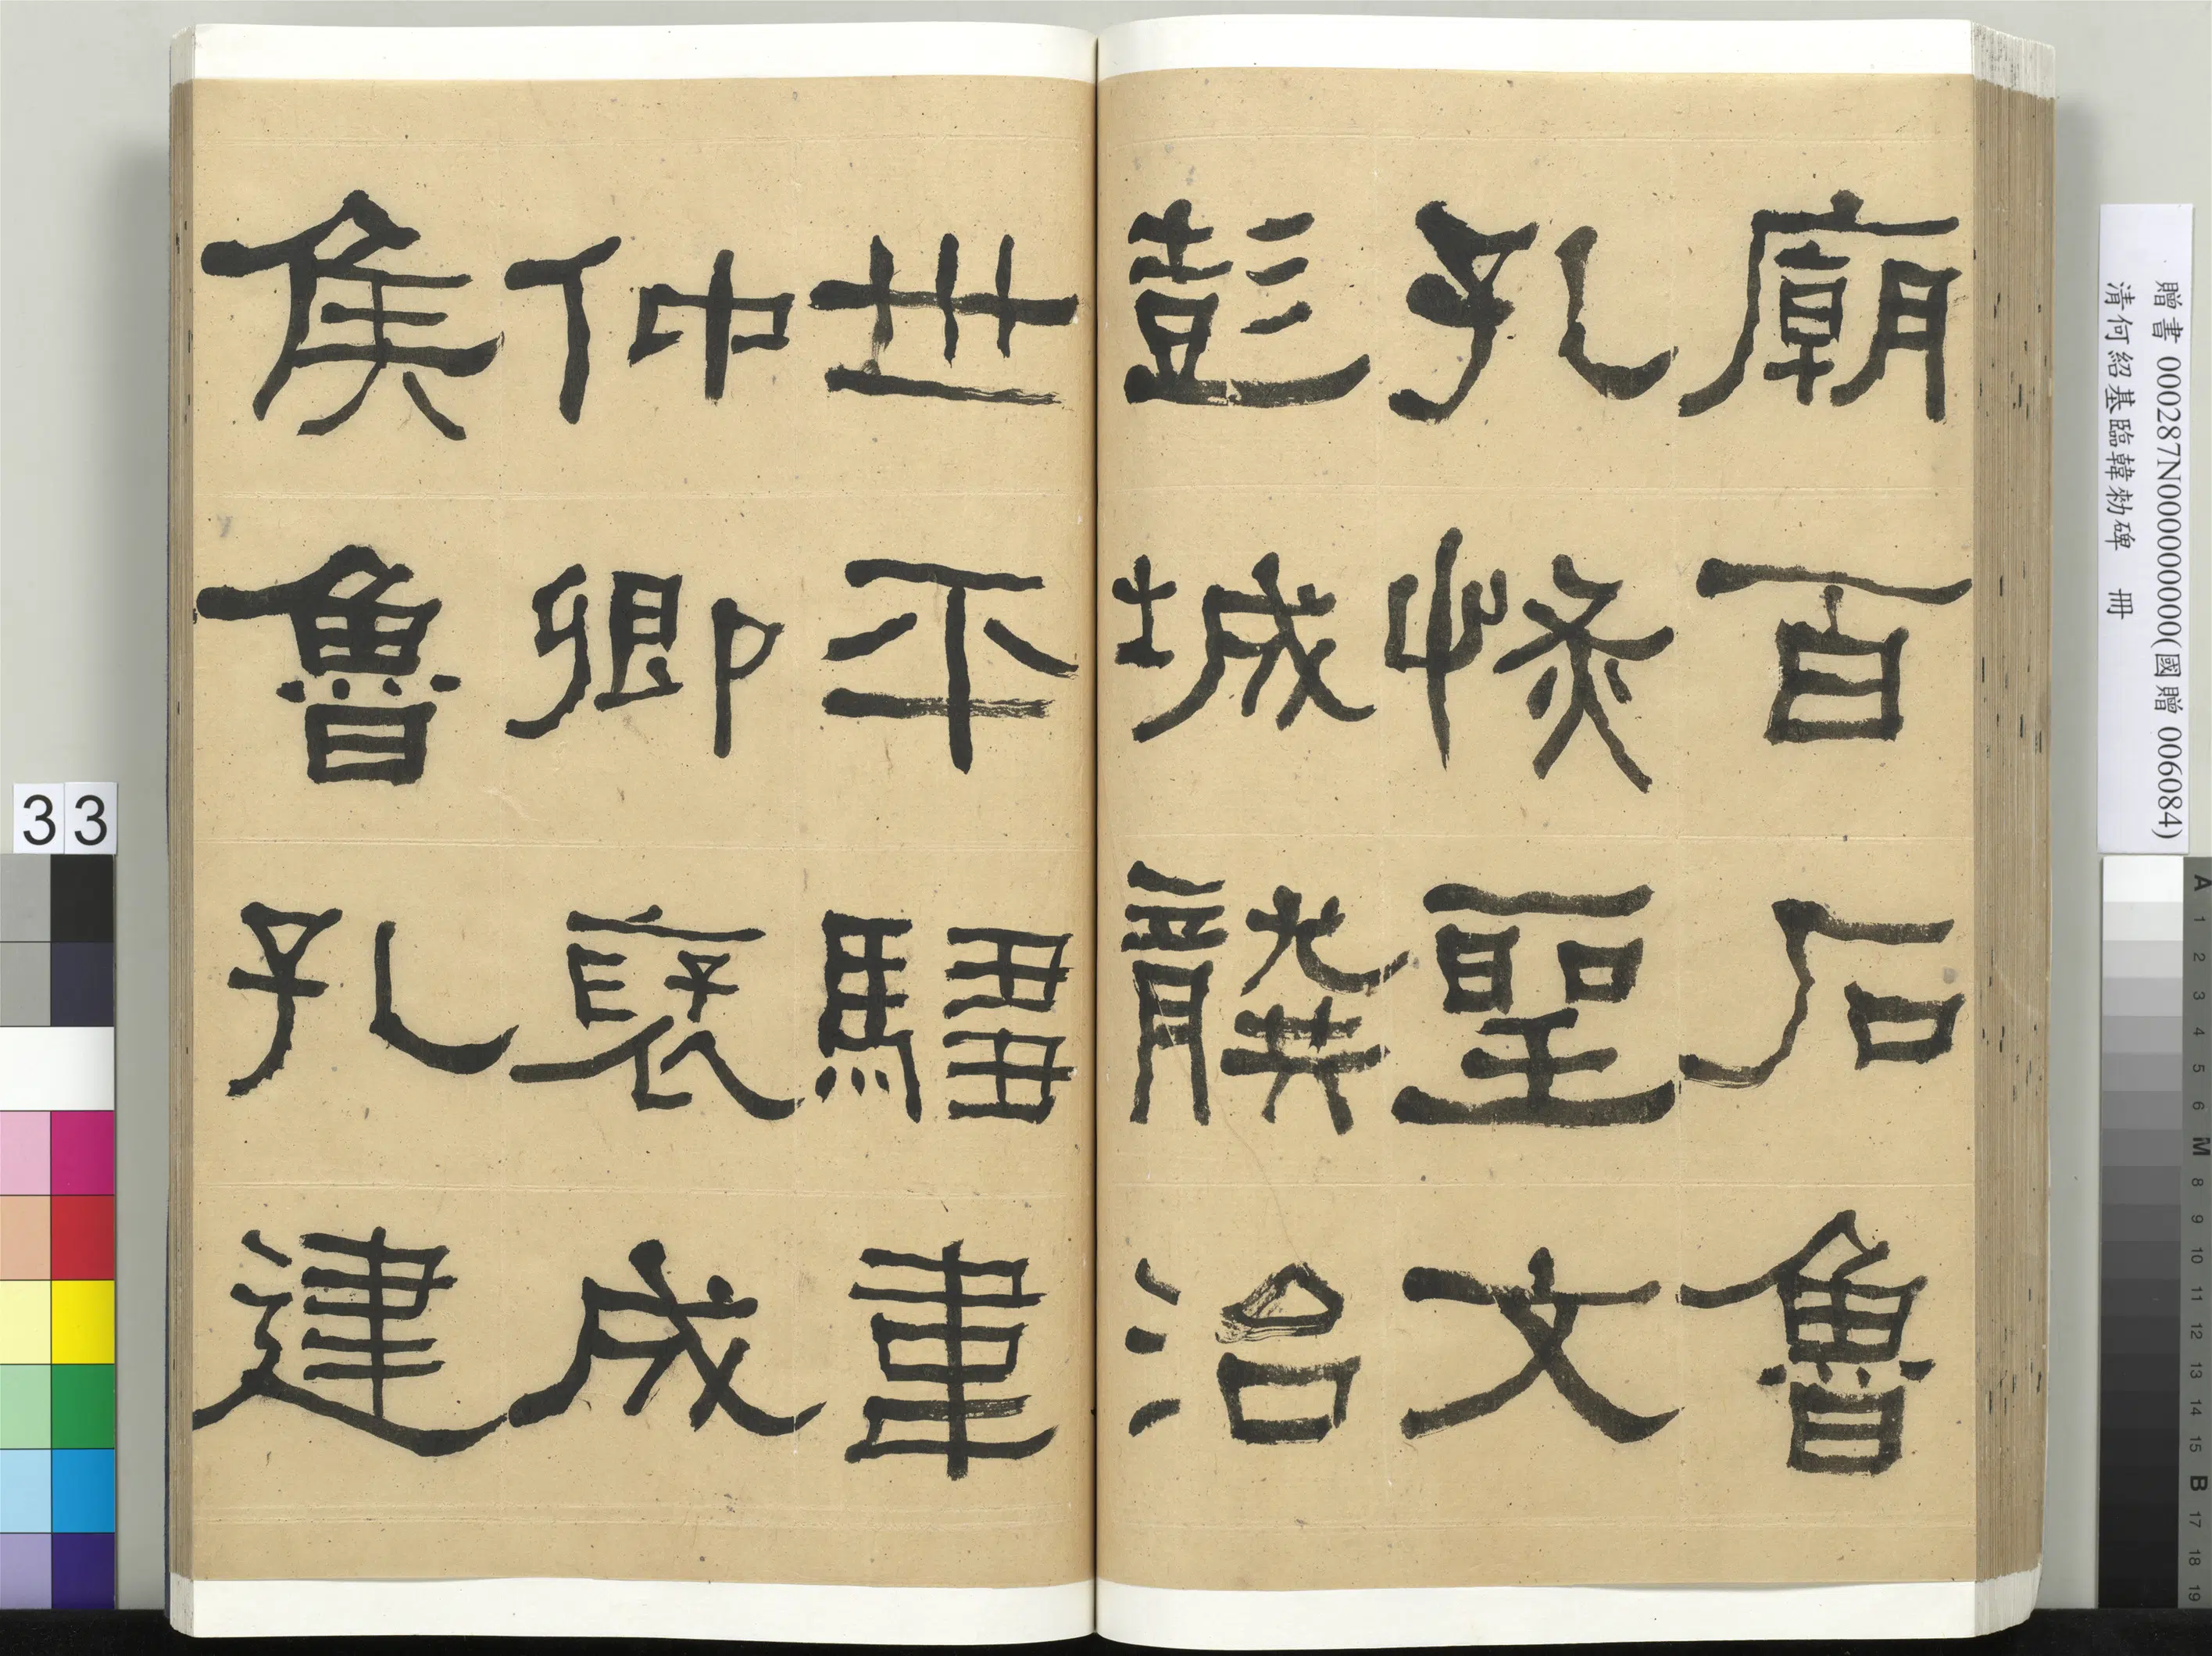 廟百石魯
孔恢聖文
彭城龔治
世平騶韋
仲卿褒成
侯魯孔建
贈書 000287N000000000(國贈 006084)
清何紹基臨韓勑碑 冊
33
A 1 2 3 4 5 6 M 8 9 10 11 12 13 14 15 B 17 18 19